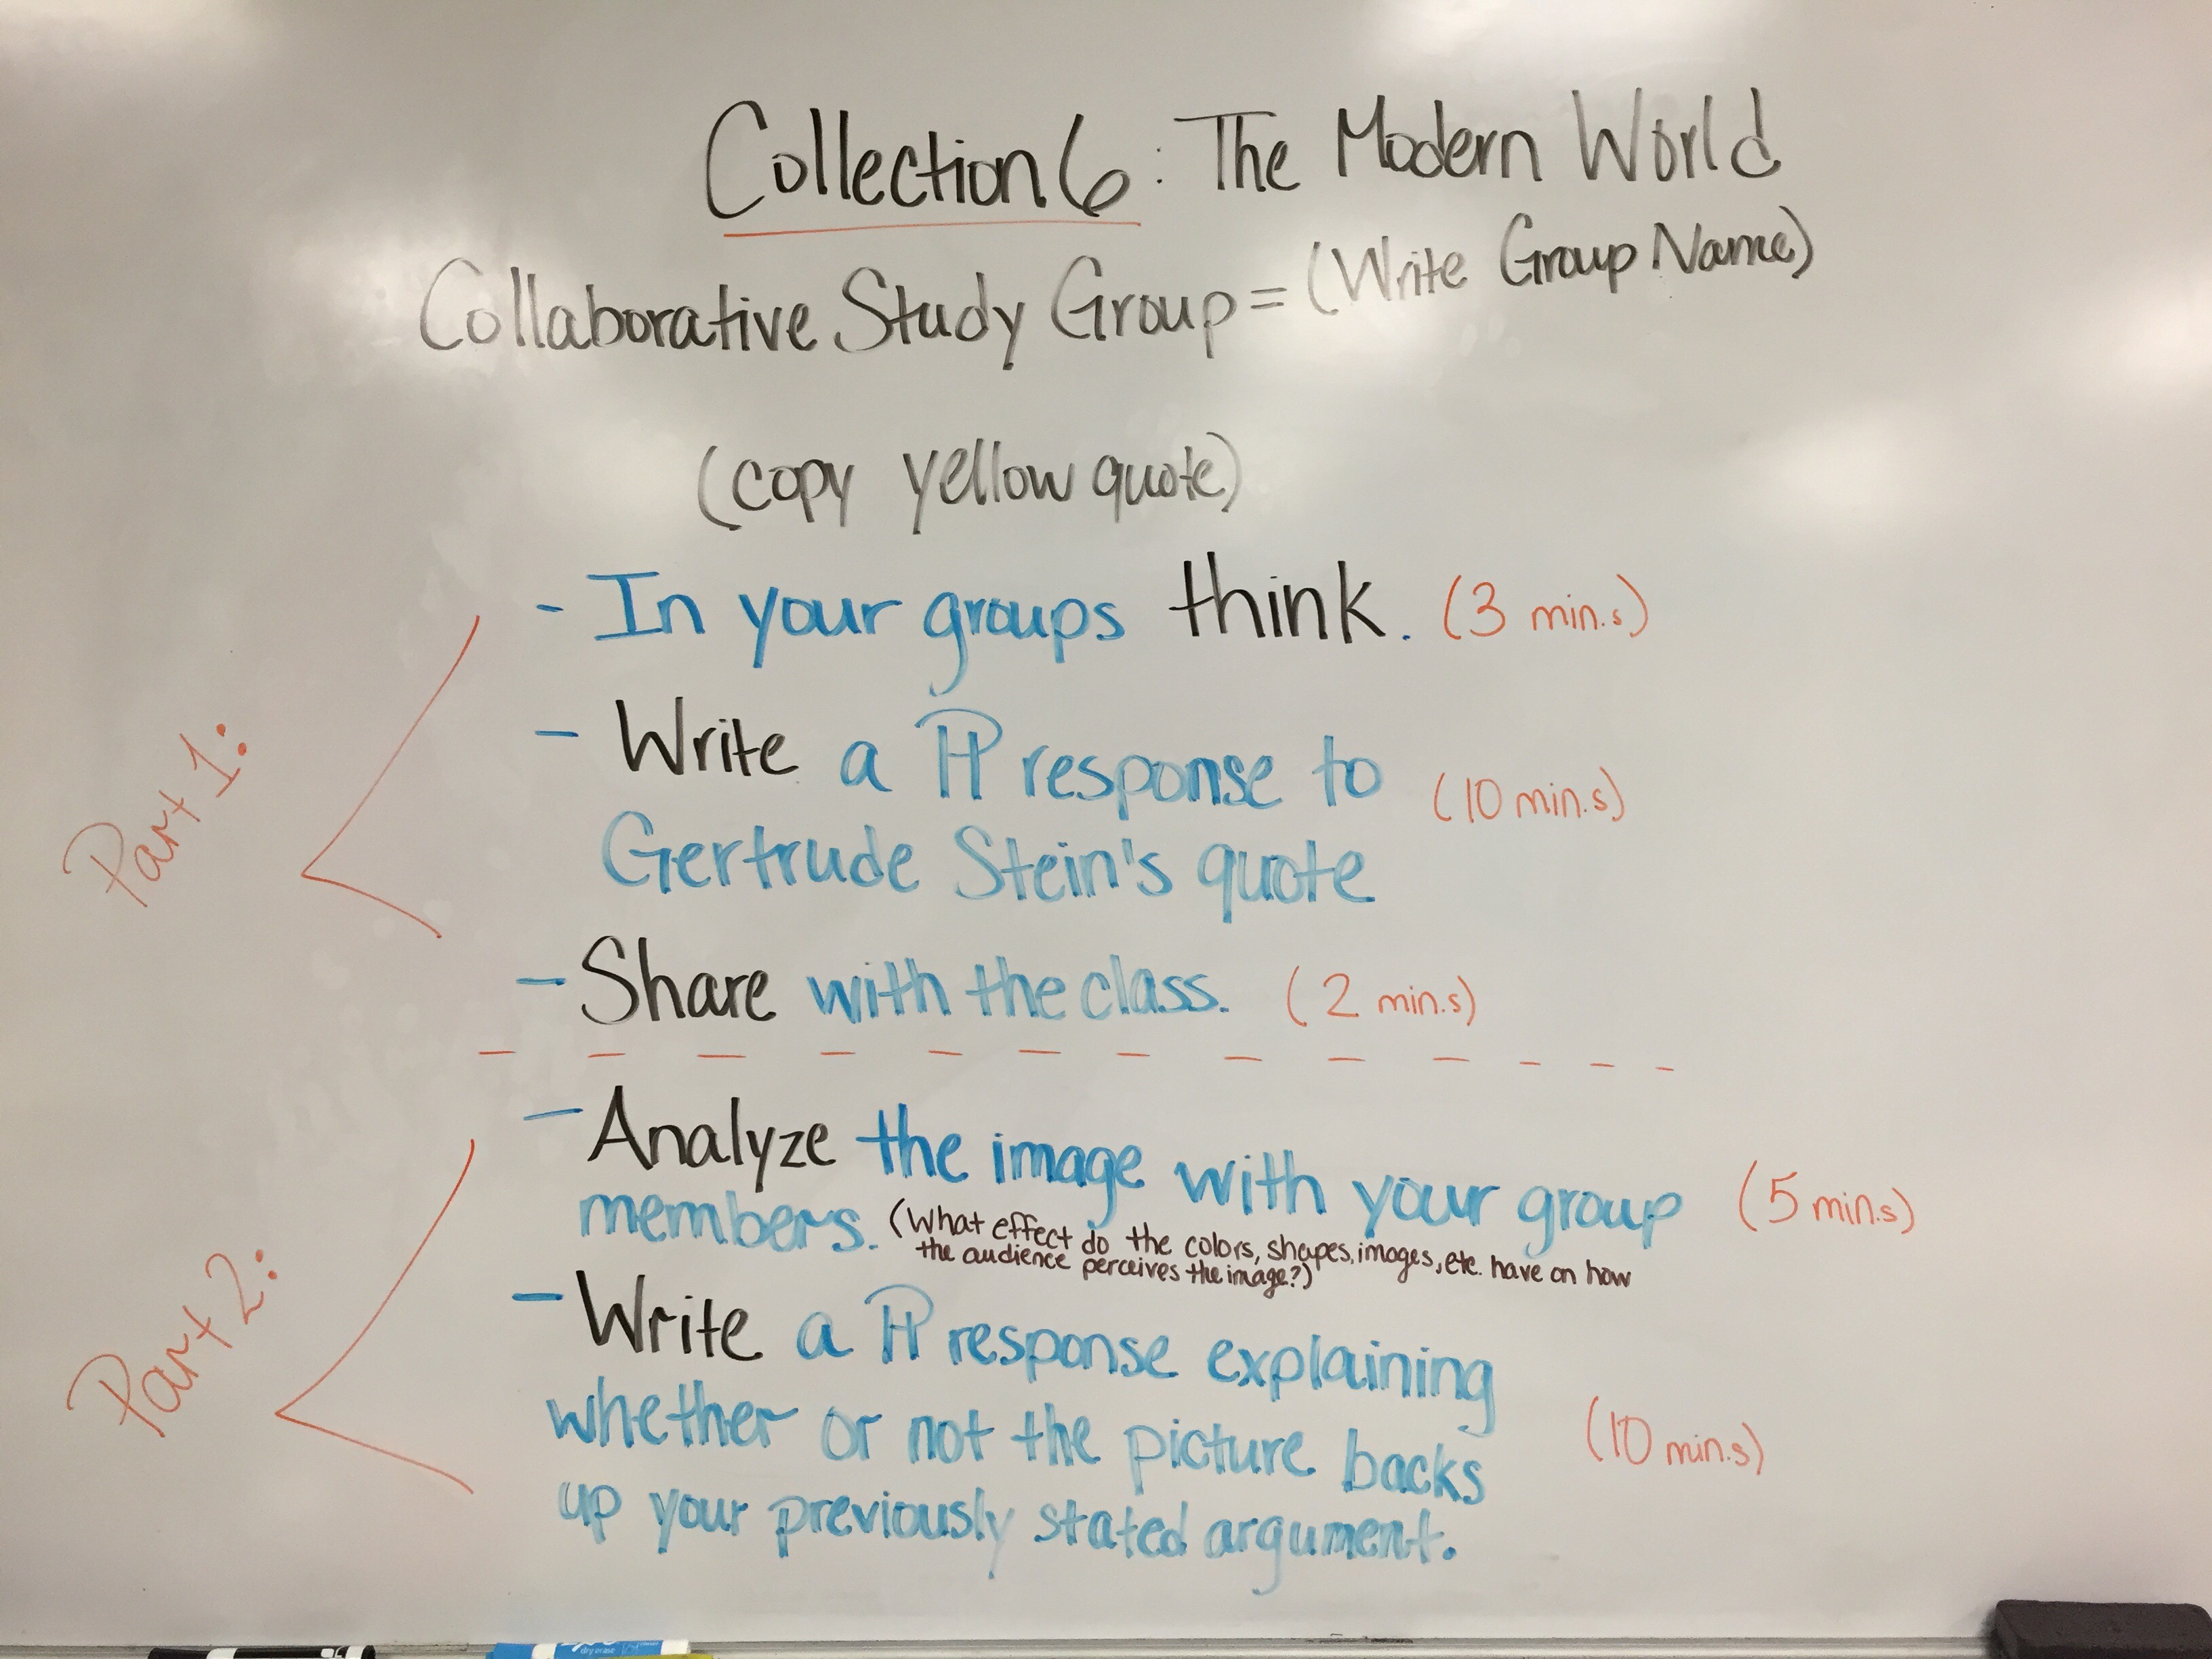 Collection 6: The Modern World
Collaborative Study Group = (Write Group Name)
(copy yellow quote)
Part 1:
- In your groups think. (3 min.s)
- Write a ¶ response to (10 min.s)
Gertrude Stein's quote
- Share with the class. (2 min.s)
Part 2:
- Analyze the image with your group (5 min.s)
members. (What effect do the colors, shapes, images, etc. have on how
the audience perceives the image?)
- Write a ¶ response explaining
whether or not the picture backs (10 min.s)
up your previously stated argument.
dry erase